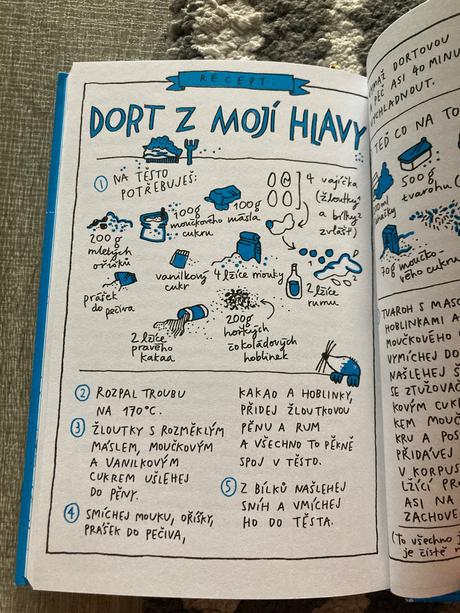 RECEPT
DORT Z MOJÍ HLAVY
① NA TĚSTO
POTŘEBUJEŠ:
200 g
mletých
oříšků
100g
moučkového
cukru
100g
másla
4 vajíčka
(žloutky
a bílky
zvlášť)
prášek
do pečiva
vanilkový
cukr
4 lžíce mouky
2 lžíce
rumu
2 lžíce
pravého
kakaa
200g
hořkých
čokoládových
hoblinek
② ROZPAL TROUBU
NA 170°C.
③ ŽLOUTKY S ROZMĚKLÝM
MÁSLEM, MOUČKOVÝM
A VANILKOVÝM
CUKREM UŠLEHEJ
DO PĚNY.
④ SMÍCHEJ MOUKU, OŘÍŠKY,
PRÁŠEK DO PEČIVA,
KAKAO A HOBLINKY,
PŘIDEJ ŽLOUTKOVOU
PĚNU A RUM
A VŠECHNO TO PĚKNĚ
SPOJ V TĚSTO.
⑤ Z BÍLKŮ NAŠLEHEJ
SNÍH A VMÍCHEJ
HO DO TĚSTA.
DORTOVOU
PEČ ASI 40 MINU
VYCHLADNOUT.
TEĎ CO NA TO
500g
tvarohu
70g moučko
vého cukru
TVAROH S MASC
HOBLINKAMI A
MOUČKOVÉHO
VYMÍCHEJ DO
NAŠLEHEJ Š
SE ZTUŽOVAČ
KOVÝM CUKR
KEM MOUČ
KRU A POS
PŘIDÁVEJ
V KORPUS
LŽÍCÍ PRO
ASI NA
ZACHOVE
(To všechno j
je čistě n